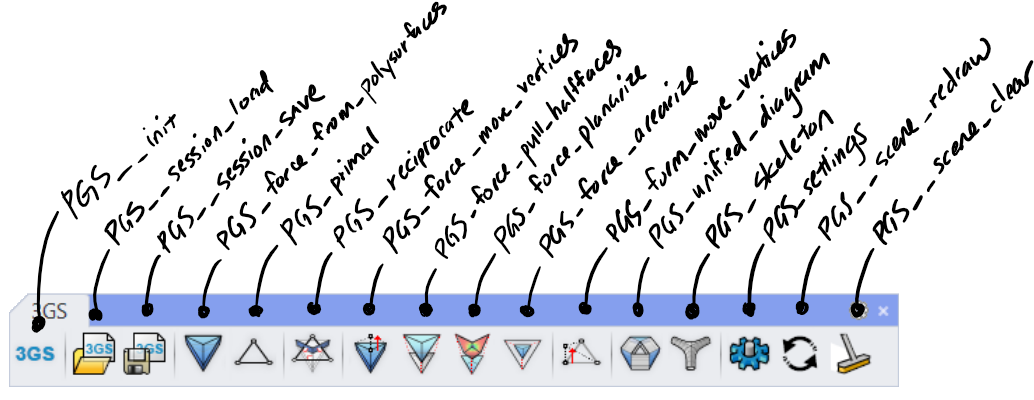 PGS__init
PGS_session_load
PGS_session_save
PGS_force_from_polysurfaces
PGS_primal
PGS_reciprocate
PGS_force_move_vertices
PGS_force_pull_halffaces
PGS_force_planarize
PGS_force_arearize
PGS_form_move_vertices
PGS_unified_diagram
PGS_skeleton
PGS_settings
PGS__scene_redraw
PGS__scene_clear
3GS
3GS
3GS
3GS